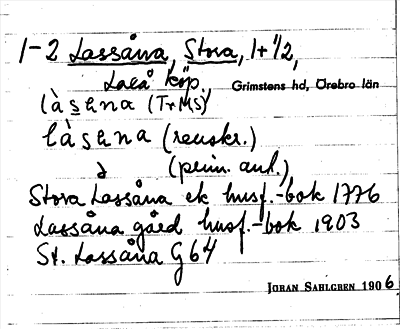 1-2 Lassåna, Stora, 1+1/2,
Laxå köp. Grimstens hd, Örebro län
làsɛna (TrMS)
làsɛna (renskr.)
(prim. ant.)
Stora Lassåna ek husf.-bok 1776
Lassåna gård husf.-bok 1903
St. Lassåna G64
JOHAN SAHLGREN 1906